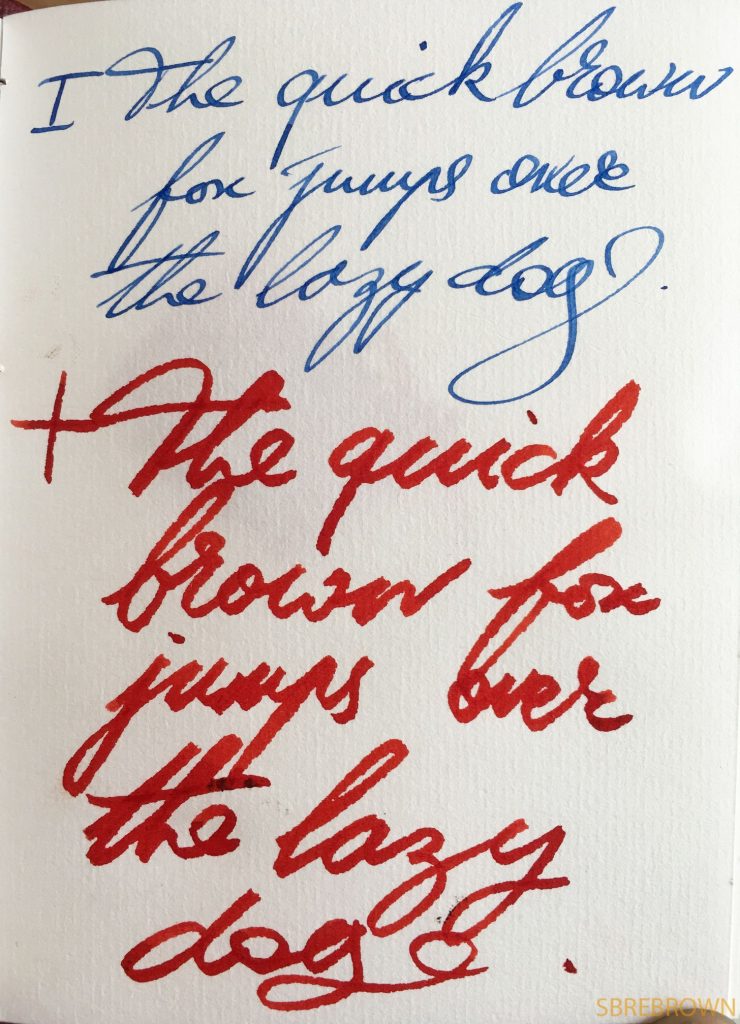 I The quick brown
fox jumps over
the lazy dog.
+ The quick
brown fox
jumps over
the lazy
dog.
SBREBROWN